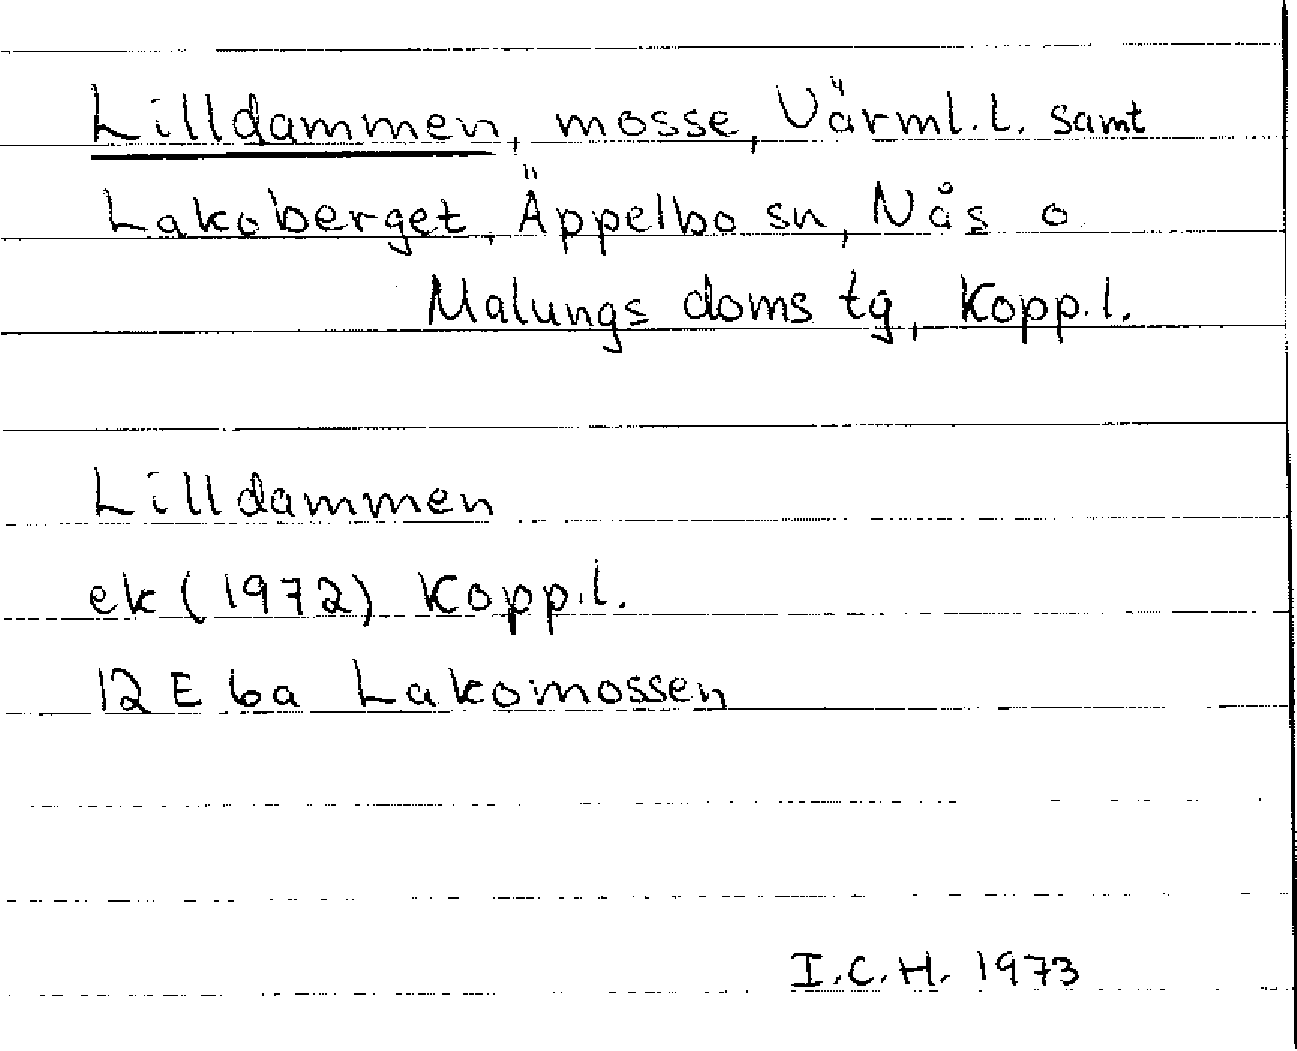 Lilldammen, mosse, Värml.l. samt
Lakoberget, Äppelbo sn, Nås o
Malungs doms tg, Kopp.l.
Lilldammen
ek (1972) Kopp.l.
12 E 6a Lakomossen
I.C.H. 1973